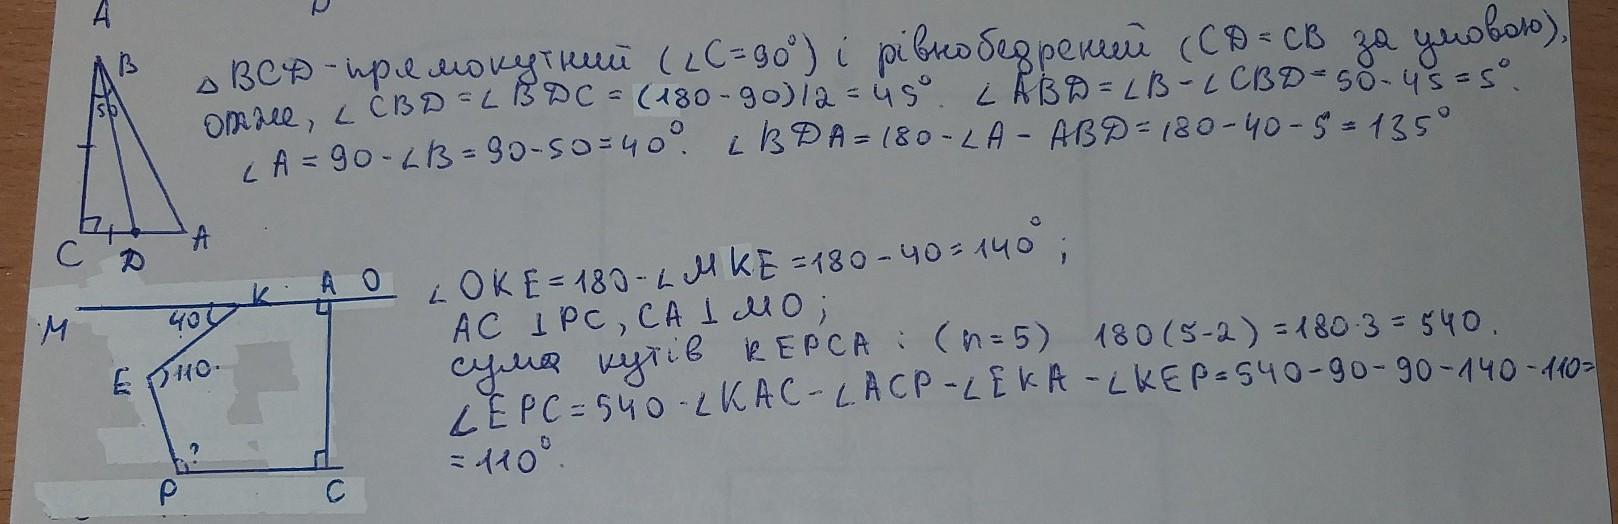 A
B
50
C
D
A
△BCD - прямокутний (∠C=90°) і рівнобедрений (CD=CB за умовою),
отже, ∠CBD=∠BDC=(180-90)/2=45°. ∠ABD=∠B-∠CBD=50-45=5°.
∠A=90-∠B=90-50=40°. ∠BDA=180-∠A-ABD=180-40-5=135°
M
K
A
O
40
E
110
?
P
C
∠OKE=180-∠MKE=180-40=140°;
AC⊥PC, CA⊥MO;
сума кутів KEPCA: (n=5) 180(5-2)=180·3=540.
∠EPC=540-∠KAC-∠ACP-∠EKA-∠KEP=540-90-90-140-110=
=110°.